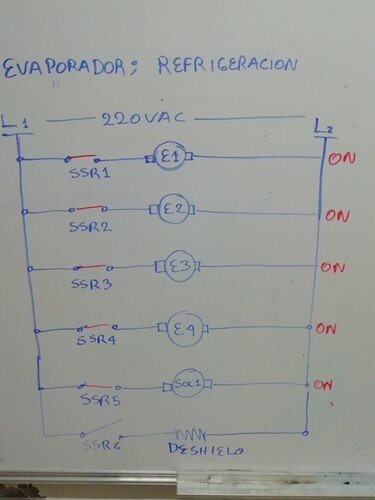 EVAPORADOR; REFRIGERACION
L1 220VAC L2
SSR1 E1 ON
SSR2 E2 ON
SSR3 E3 ON
SSR4 E4 ON
SSR5 SOL1 ON
SSR6 DESHIELO